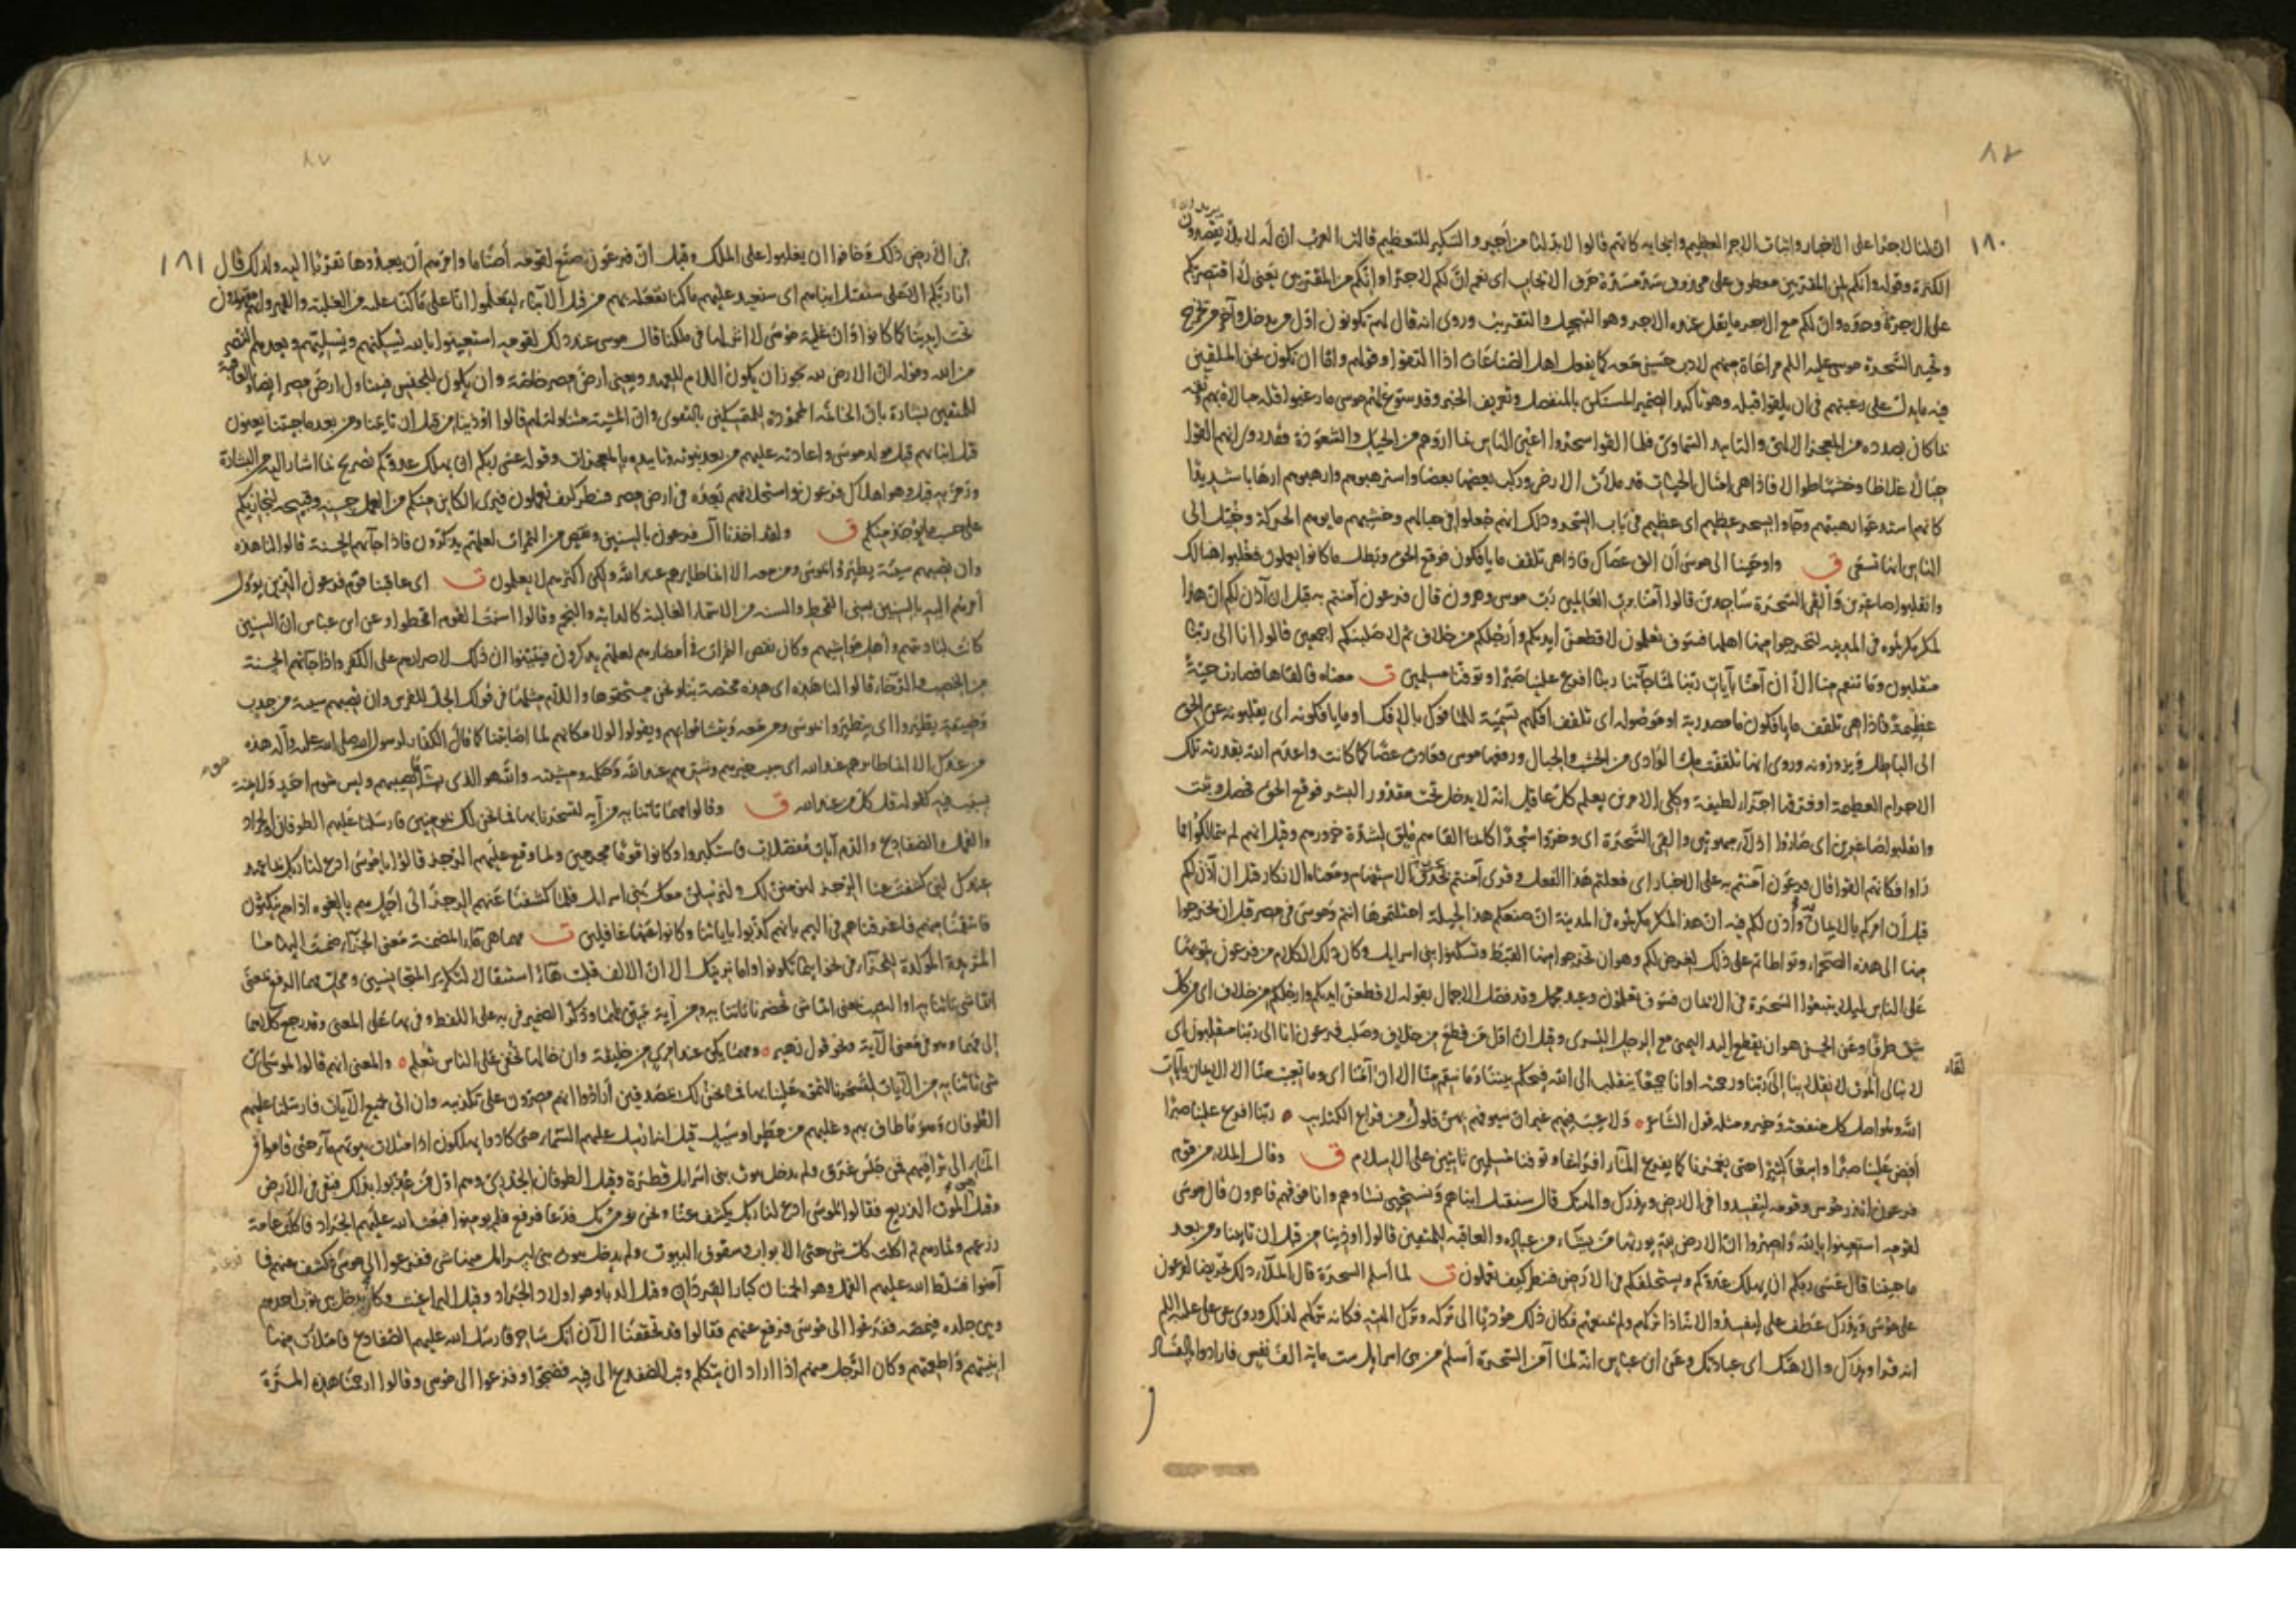 ٨٢
١٨٠
ان لنا لاجرا على الاخبار واثبات الاجر العظيم وايجابه كانهم قالوا لابد لنا من أجر والتنكير للتعظيم قالت العرب ان له لابلا يقصدون
الكثرة وقوله وانكم لمن المقربين معطوف على محذوف سد مسده حرف الايجاب اى نعم ان لكم لاجرا وانكم من المقربين يعنى لا اقتصر بكم
على الاجر وحده وان لكم مع الاجر ما يقل عنده الاجر وهو التبجيل والتقريب وروى انه قال لهم تكونون اول من يدخل وآخر من يخرج
وتخيير السحرة موسى عليه السلم مراعاة منهم لادب حسن معه كما يفعل اهل الصناعات اذا التقوا وقولهم واما ان نكون نحن الملقين
فيه ما يدل على رغبتهم فى ان يلقوا قبله وهو تأكيد الضمير المستكن بالمنفصل وتعريف الخبر وقد سوغ لهم موسى ما رغبوا قلة مبالاة بهم ثقة
بما كان بصدده من المعجز الالهى والتاييد السماوى فلما القوا سحروا اعين الناس بما اروهم من الحيل والشعوذة فقد روى انهم القوا
حبالا غلاظا وخشبا طوالا فاذا هى امثال الحيات قد ملأت الارض وركب بعضها بعضا واسترهبوهم وارهبوهم ارهابا شديدا
كانهم استدعوا رهبتهم وجاؤا بسحر عظيم اى عظيم فى باب السحر وذلك انهم جعلوا فى حبالهم وخشبهم ما يوهم الحركة وخيل الى
الناس انها تسعى ق واوحينا الى موسى أن الق عصاك فاذا هى تلقف ما يافكون فوقع الحق وبطل ما كانوا يعملون فغلبوا هنالك
وانقلبوا صاغرين وألقى السحرة ساجدين قالوا آمنا برب العالمين رب موسى وهرون قال فرعون آمنتم به قبل ان آذن لكم ان هذا
لمكر مكرتموه فى المدينة لتخرجوا منها اهلها فسوف تعلمون لاقطعن أيديكم وأرجلكم من خلاف ثم لاصلبنكم اجمعين قالوا انا الى ربنا
منقلبون وما تنقم منا الا ان آمنا بآيات ربنا لما جاءتنا ربنا افرغ علينا صبرا وتوفنا مسلمين ق معناه فالقاها فصارت حية
عظيمة فاذا هى تلقف ما يافكون ما مصدرية او موصولة اى تلقف افكهم تسمية للمافوك بالافك او ما يافكونه اى يقلبونه عن الحق
الى الباطل ويزورونه وروى انها تلقفت ملء الوادى من الخشب والحبال ورفعها موسى فعادت عصا كما كانت واعدم الله بقدرته تلك
الاجرام العظيمة او فرقها اجزاء لطيفة
وانقلبوا صاغرين اى صاروا اذلاء مبهوتين والقى السحرة اى وخروا سجدا كانما القاهم ملق لشدة خرورهم وقيل انهم لم يتمالكوا مما
راوا فكانهم القوا قال فرعون آمنتم به على الاخبار اى فعلتم هذا الفعل وقرى آمنتم بحرف الاستفهام ومعناه الانكار قبل ان آذن لكم
قبل أن امركم بالايمان وآذن لكم فيه ان هذا لمكر مكرتموه فى المدينة ان صنعكم هذا لحيلة احتلتموها انتم وموسى فى مصر قبل ان تخرجوا
منها الى هذه الصحراء وتواطاتم على ذلك لغرض لكم وهو ان تخرجوا منها القبط وتسكنوا بنى اسرايل وكان ذلك الكلام من فرعون تمويها
على الناس ليلا يتبعوا السحرة فى الايمان فسوف تعلمون وعيد مجمل وقد فصل الاجمال بقوله لاقطعن ايديكم وارجلكم من خلاف اى من كل
شق طرفا وعن الحسن هو ان يقطع اليد اليمنى مع الرجل اليسرى وقيل ان اول من قطع من خلاف وصلب فرعون انا الى ربنا منقلبون اى
لقاء
لا نبالى الموت لانقلابنا الى ربنا ورحمته او انا جميعا ننقلب الى الله فيحكم بيننا وما تنقم منا الا ان آمنا اى وما تعيب منا الا الايمان بايات
الله وهو اصل كل منفعة وخير ومثله قول الشاعر ولا عيب فيهم غير ان سيوفهم بهن فلول من قراع الكتايب ربنا افرغ علينا صبرا
أفض علينا صبرا واسعا كثيرا حتى يغمرنا كما يفرغ الماء افراغا وتوفنا مسلمين ثابتين على الاسلام ق وقال الملأ من قوم
فرعون اتذر موسى وقومه ليفسدوا فى الارض ويذرك والهتك قال سنقتل ابناءهم ونستحيى نساءهم وانا فوقهم قاهرون قال موسى
لقومه استعينوا بالله واصبروا ان الارض لله يورثها من يشاء من عباده والعاقبة للمتقين قالوا اوذينا من قبل ان تاتينا ومن بعد
ما جئتنا قال عسى ربكم ان يهلك عدوكم ويستخلفكم فى الارض فينظر كيف تعملون ق لما أسلم السحرة قال الملأ ذلك تحريضا لفرعون
على موسى ويذرك عطف على ليفسدوا لانه اذا تركهم ولم يمنعهم فكان ذلك مؤديا الى تركه وترك آلهته فكانه تركهم لذلك وروى عن على عليه السلم
انه قرا ويذرك والاهتك اى عبادتك وعن ابن عباس انه لما آمن السحرة أسلم من بنى اسرايل ست ماية الف نفس فارادوا بالفساد
٨٧
١٨١
فى الأرض ذلك وخافوا ان يغلبوا على الملك وقيل ان فرعون صنع لقومه أصناما وامرهم أن يعبدوها تقربا اليه ولذلك قال
انا ربكم الاعلى سنقتل ابناءهم اى سنعيد عليهم ما كنا نفعله بهم من قتل الابناء ليعلموا انا على ما كنا عليه من الغلبة والقهر وانهم مقهورون
تحت ايدينا كما كانوا وان غلبة موسى لا اثر لها فى ملكنا قال موسى عند ذلك لقومه استعينوا بالله يسكنهم ويسليهم ويعدهم النصر
من الله وقوله ان الارض لله يجوز ان يكون اللام للعهد ويعنى ارض مصر خاصة وان يكون للجنس فيتناول ارض مصر ايضا والعاقبة
للمتقين بشارة بان الخاتمة المحمودة للمتمسكين بالتقوى وان المشية متناولة لهم قالوا اوذينا من قبل ان تاتينا ومن بعد ما جئتنا يعنون
قتل ابنائهم قبل مولد موسى واعادته عليهم من بعد نبوته وتاييده بالمعجزات وقوله عسى ربكم ان يهلك عدوكم تصريح بما اشار اليه من البشارة
ورمز به قبل وهو اهلاك فرعون واستخلافهم بعده فى ارض مصر فينظر كيف تعملون فيرى الكاين منكم من العمل حسنه وقبيحه ليجازيكم
على حسب ما يوجد منكم ق ولقد اخذنا آل فرعون بالسنين ونقص من الثمرات لعلهم يذكرون فاذا جاءتهم الحسنة قالوا لنا هذه
وان تصبهم سيئة يطيروا بموسى ومن معه الا انما طايرهم عند الله ولكن اكثرهم لا يعلمون ق اى عاقبنا قوم فرعون الذين يؤول
أمرهم اليه بالسنين يعنى القحط والسنة من الاسماء الغالبة كالدابة والنجم وقالوا اسنت القوم اقحطوا وعن ابن عباس ان السنين
كانت لباديتهم وأهل مواشيهم وكان نقص الثمرات فى أمصارهم لعلهم يذكرون فيتنبهوا ان ذلك لاصرارهم على الكفر واذا جاءتهم الحسنة
من الخصب والرخاء قالوا لنا هذه اى هذه مختصة بنا ونحن مستحقوها واللام مثلها فى قولك الجل للفرس وان تصبهم سيئة من جدب
وضيقة يطيروا اى يتطيروا بموسى ومن معه ويتشاءموا بهم ويقولوا لولا مكانهم لما اصابتنا كما قال الكفار لرسول الله صلى الله عليه وآله هذه
من عندك الا انما طايرهم عند الله اى سبب خيرهم وشرهم عند الله وحكمه ومشيته والله هو الذى يشاء ما يصيبهم وليس شوم احد ولا يمنه
بسبب فيه كقوله قل كل من عند الله ق وقالوا مهما تاتنا به من آية لتسحرنا بها فما نحن لك بمومنين فارسلنا عليهم الطوفان والجراد
والقمل والضفادع والدم آيات مفصلات فاستكبروا وكانوا قوما مجرمين ولما وقع عليهم الرجز قالوا يا موسى ادع لنا ربك بما عهد
عندك لئن كشفت عنا الرجز لنومنن لك ولنرسلن معك بنى اسرايل فلما كشفنا عنهم الرجز الى اجل هم بالغوه اذا هم ينكثون
فانتقمنا منهم فاغرقناهم فى اليم بانهم كذبوا باياتنا وكانوا عنها غافلين ق مهما هى ما المضمنة معنى الجزاء ضمت اليها ما
المزيدة المؤكدة للجزاء فى نحو اينما تكونوا واما نرينك الا ان الالف قلبت هاء استثقالا لتكرير المتجانسين ومحل مهما الرفع بمعنى
ايما شى تاتنا به او النصب بمعنى ايما شى تحضرنا تاتنا به ومن آية تبيين لمهما وذكر الضمير فى به على اللفظ وفى بها على المعنى وقد رجع كلاهما
الى مهما وهو فى معنى الآية ونحو قول زهير ومهما يكن عند امرئ من خليقة وان خالها تخفى على الناس تعلم والمعنى انهم قالوا لموسى اى
شى تاتنا به من الآيات لتسحرنا لتموه علينا بها فما نحن لك بمصدقين أرادوا انهم مصرون على تكذيبه وان اتى بجميع الآيات فارسلنا عليهم
الطوفان وهو ما طاف بهم وغلبهم من مطر او سيل قيل انه ارسل عليهم السماء حتى كادوا يهلكون اذ امتلات بيوتهم ماء حتى قاموا فى
الماء الى تراقيهم فمن جلس غرق ولم يدخل بيوت بنى اسرايل قطرة وقيل الطوفان الجدرى وهم اول من عذبوا بذلك فبقى فى الأرض
وقيل الموت الذريع فقالوا لموسى ادع لنا ربك يكشف عنا ونحن نؤمن بك فدعا فرفع فلم يومنوا فبعث الله عليهم الجراد فاكلت عامة
زرعهم وثمارهم ثم اكلت كل شى حتى الابواب وسقوف البيوت ولم يدخل بيوت بنى اسرايل منها شى ففزعوا الى موسى فكشف عنهم فما
آمنوا فسلط الله عليهم القمل وهو الحمنان كبار القردان وقيل الدبا وهو اولاد الجراد وقيل البراغيث وكان يدخل بين ثوب احدهم
وبين جلده فيمصه ففزعوا الى موسى فرفع عنهم فقالوا قد تحققنا الآن انك ساحر فارسل الله عليهم الضفادع فامتلات منها
ابنيتهم واطعمتهم وكان الرجل منهم اذا اراد ان يتكلم وثب الضفدع الى فيه فضجوا وفزعوا الى موسى وقالوا ارحمنا هذه المرة